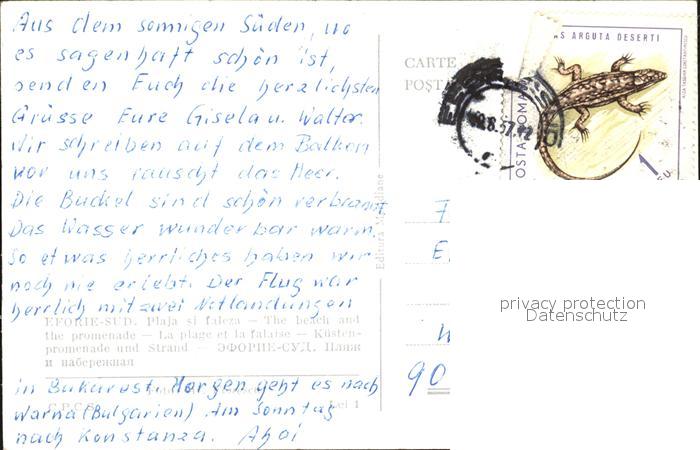 Aus dem sonnigen Süden, wo
es sagenhaft schön ist,
senden Euch die herzlichsten
Grüsse Eure Gisela u. Walter.
Wir schreiben auf dem Balkon
vor uns rauscht das Meer.
Die Buckel sind schön verbrannt.
Das Wasser wunderbar warm.
So etwas herrliches haben wir
noch nie erlebt. Der Flug war
herrlich mit zwei Notlandungen
EFORIE-SUD. Plaja și faleza — The beach and
the promenade — La plage et la falaise — Küsten-
promenade und Strand — ЭФОРИЕ-СУД. Пляж
и набережная
in Bukarest. Morgen geht es nach
Warna (Bulgarien) Am Sonntag
Lei 1
nach Konstanza. Ahoi
Editura Meridiane
CARTE
POȘTA
AS ARGUTA DESERTI
POSTA ROMA
90
privacy protection
Datenschutz